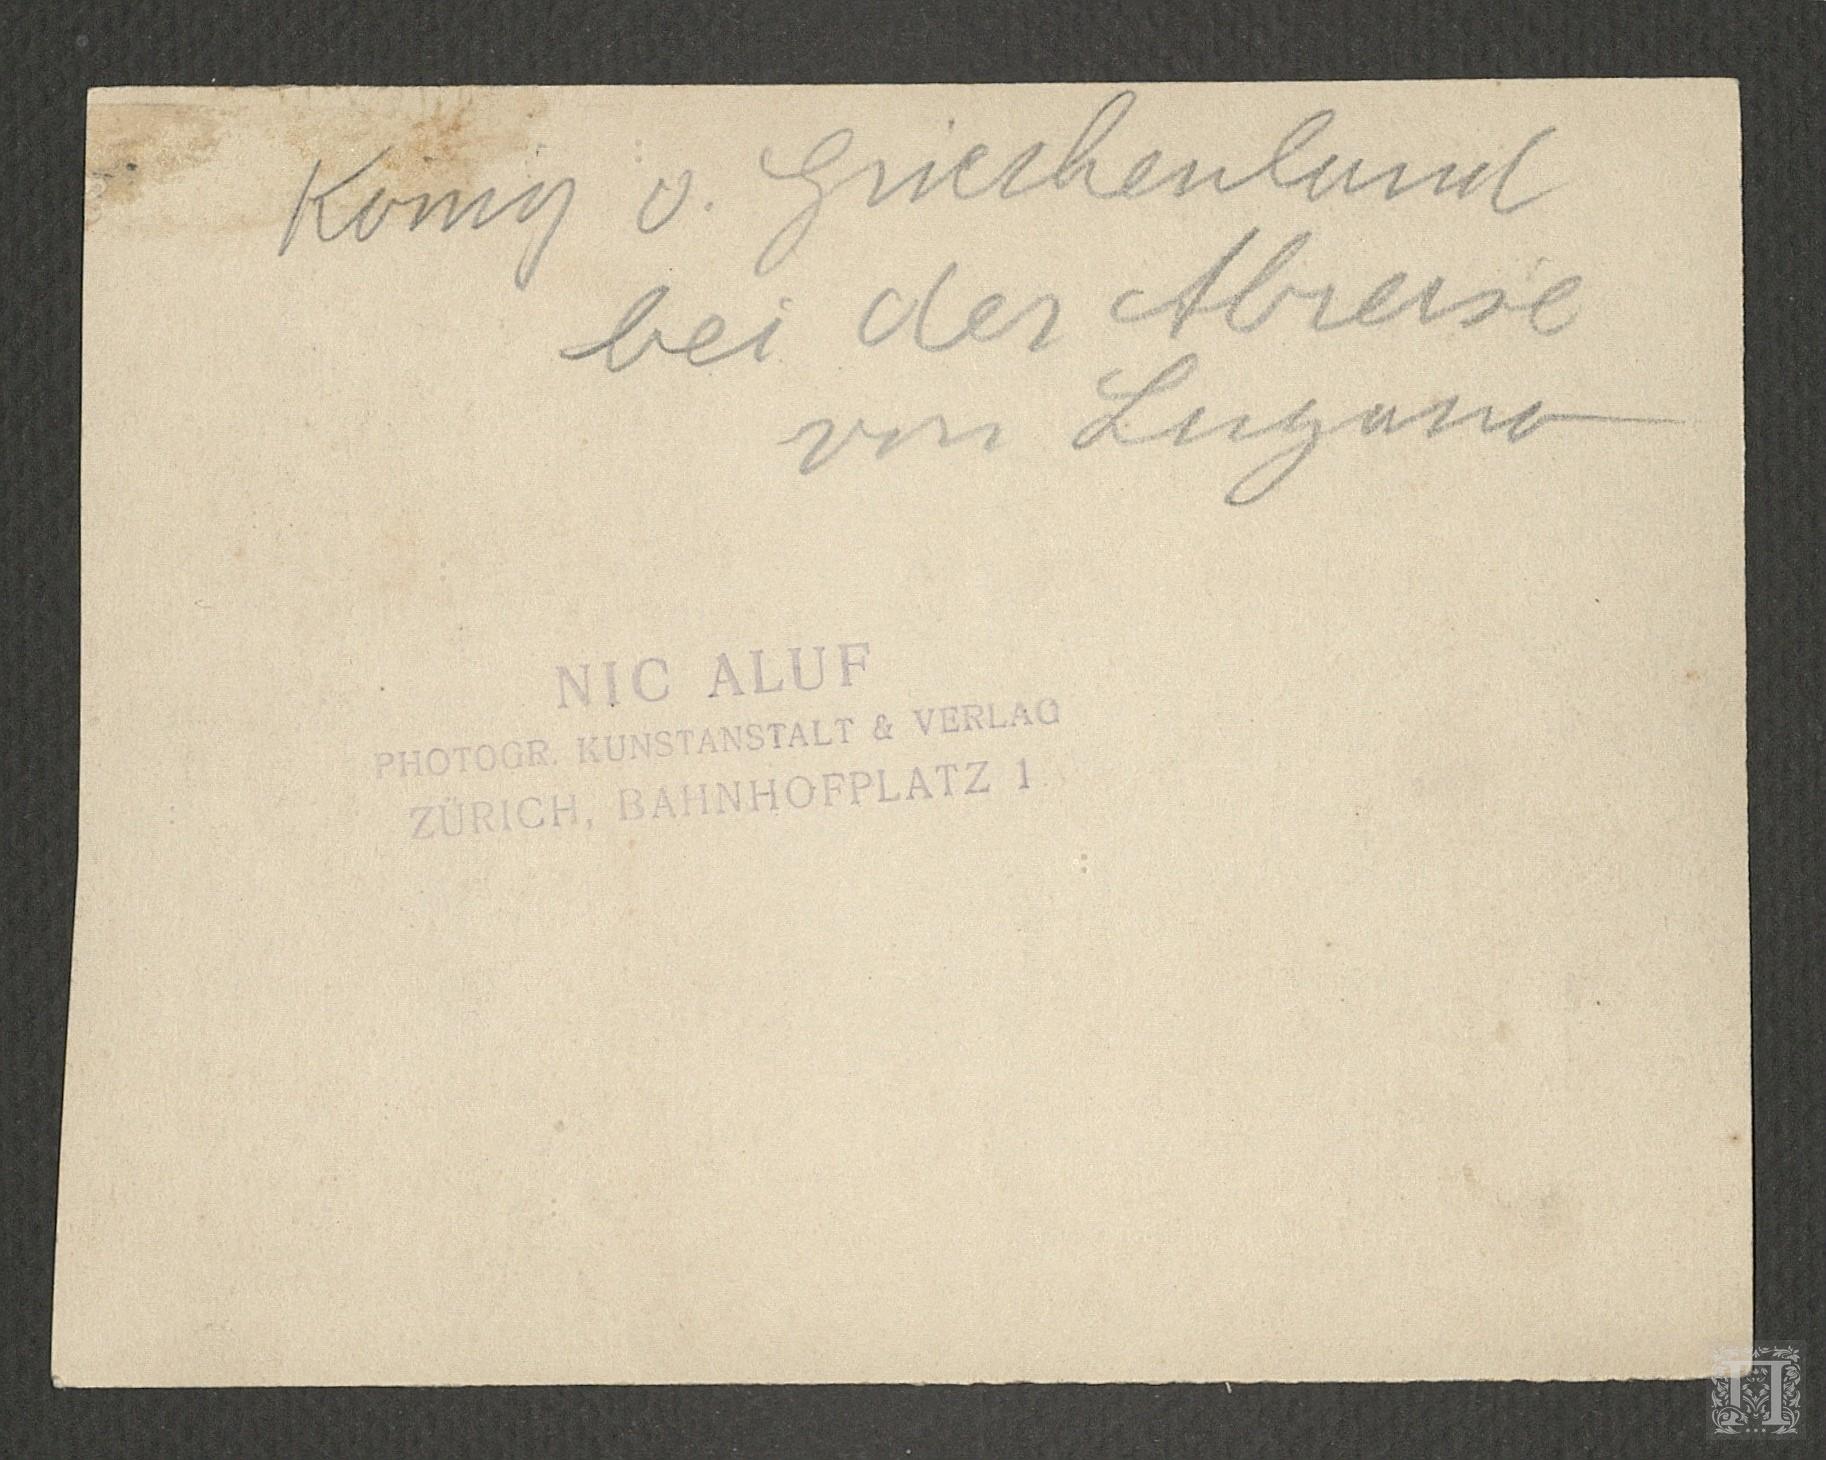 König v. Griechenland
bei der Abreise
von Lugano
NIC ALUF
PHOTOGR. KUNSTANSTALT & VERLAG
ZÜRICH, BAHNHOFPLATZ 1
Π